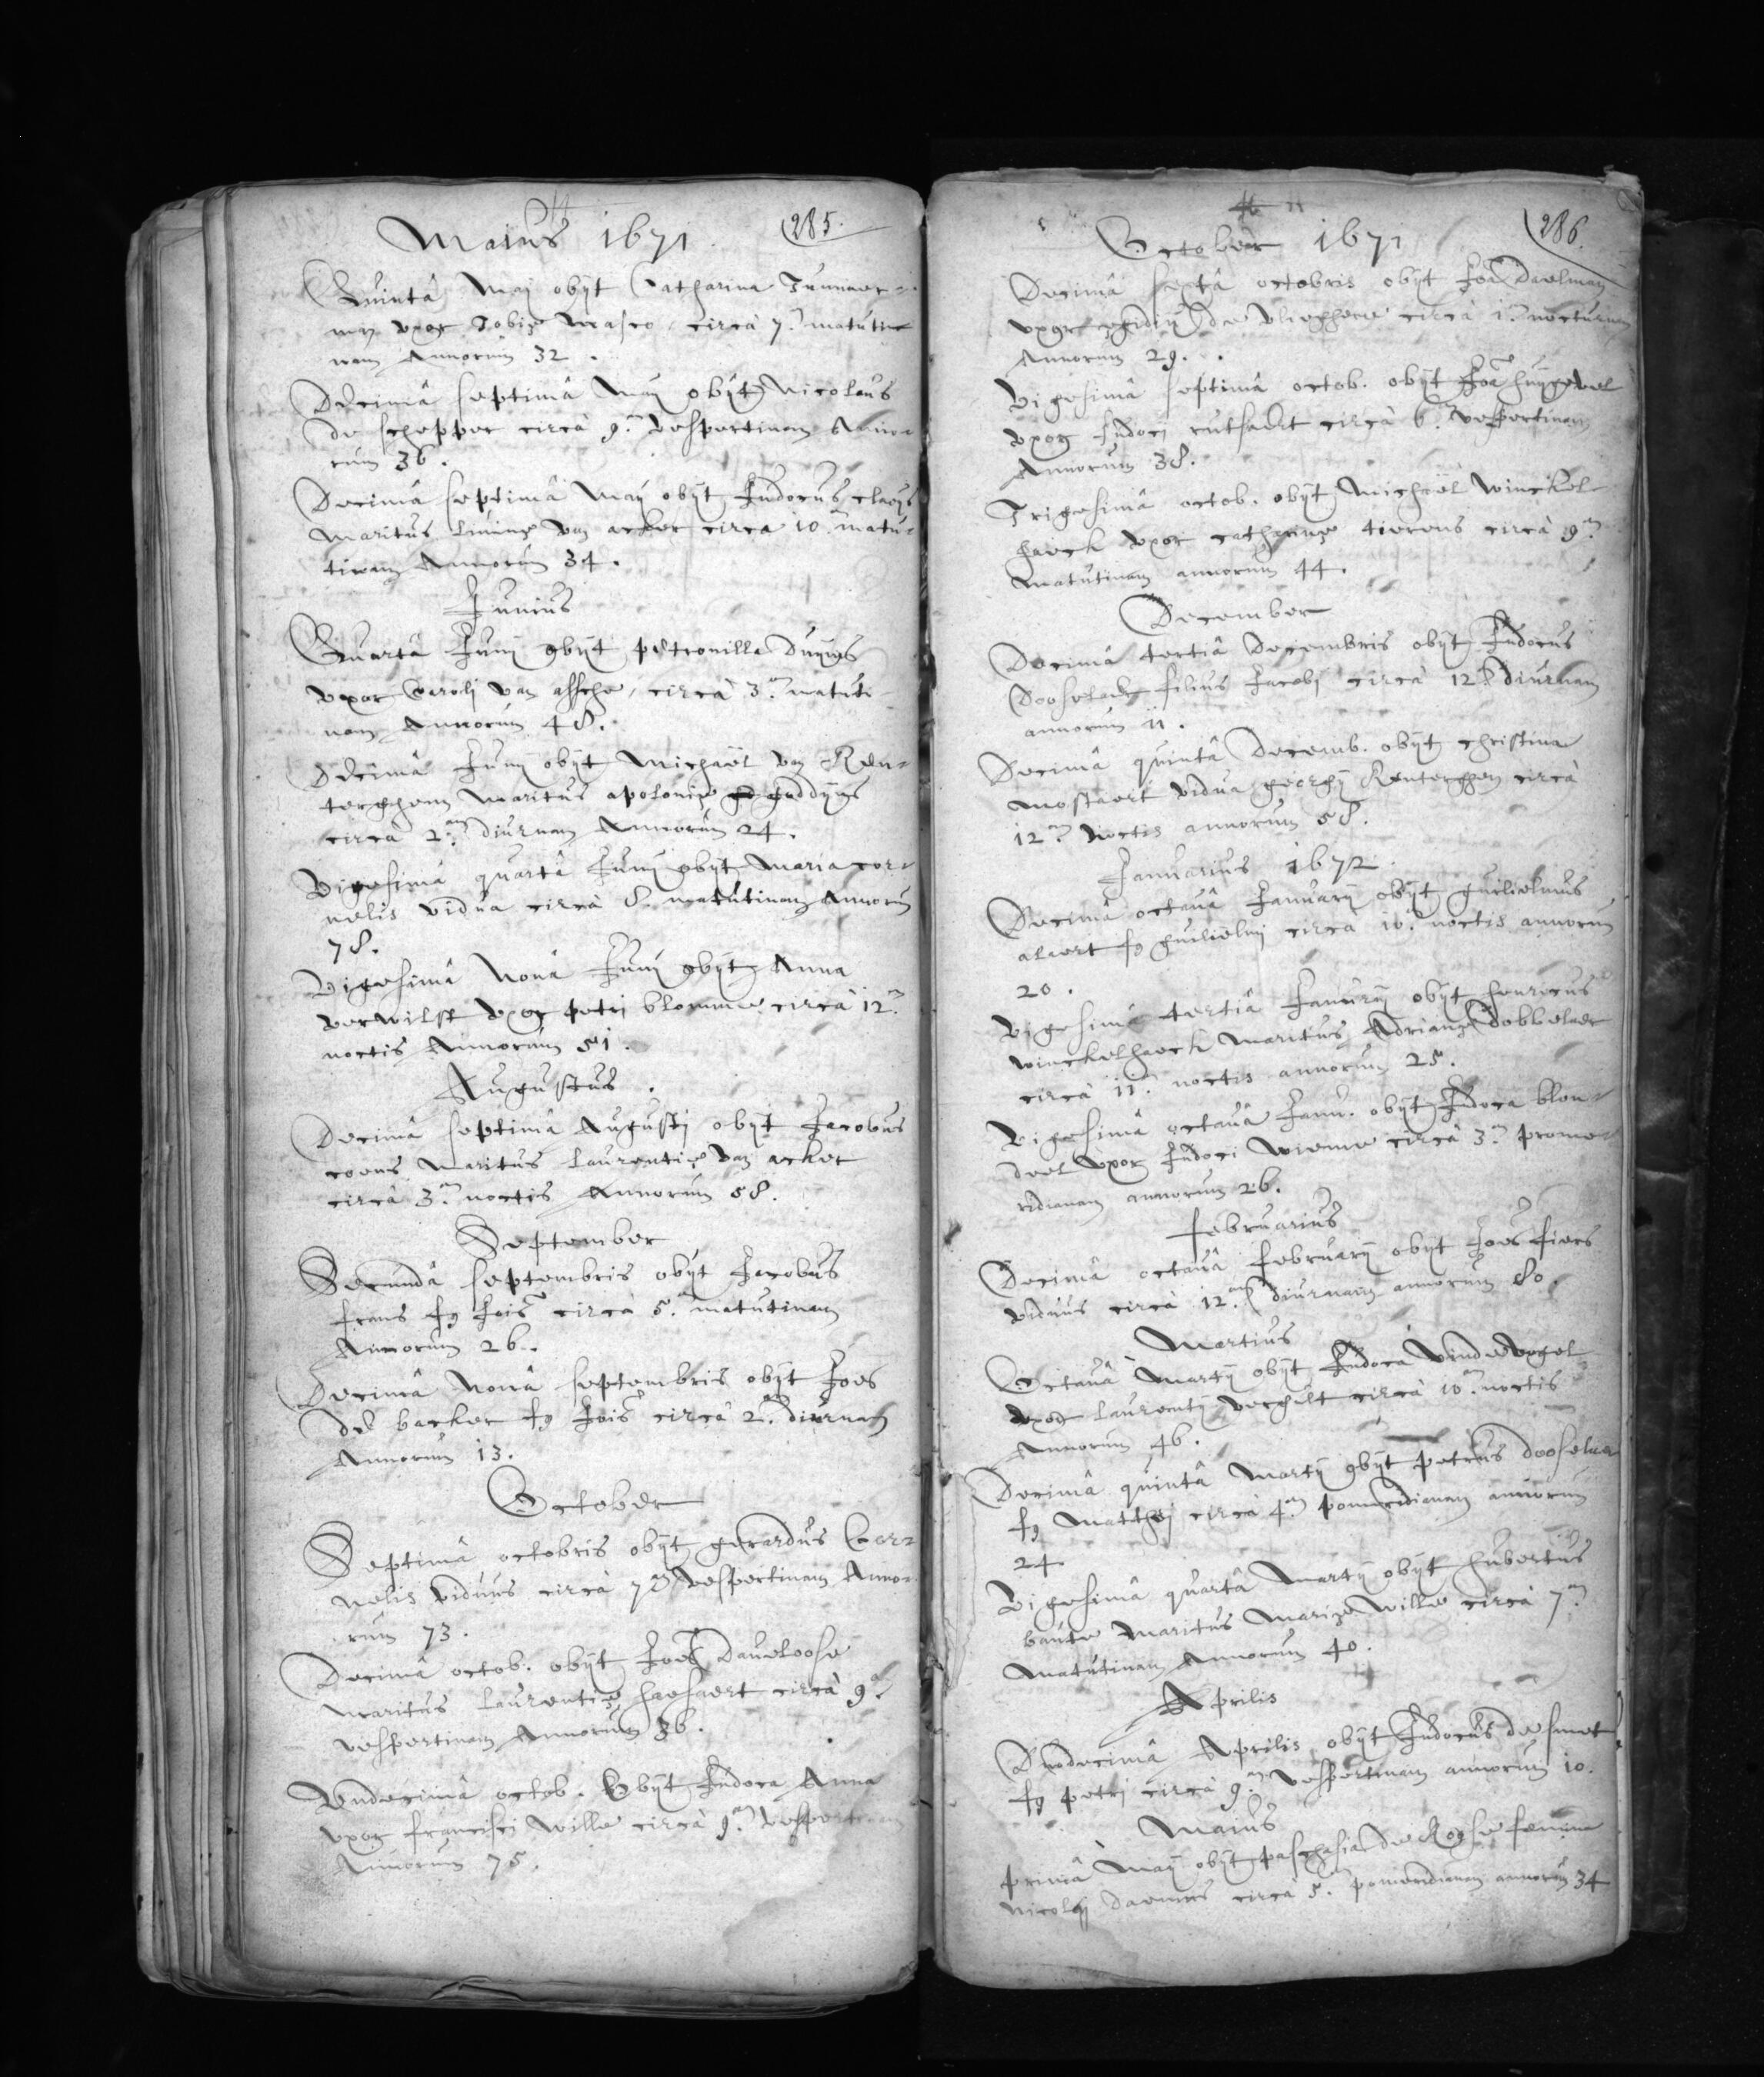 Maius 1671. 285.
Quintâ Maij obijt Catharina Timmer-
man uxor Tobiæ Masco, circà 7.am matuti-
nam Annorum 32.
Decimâ septimâ Maij obijt Nicolaus
de schepper circà 9.am vespertinam Anno-
rum 36.
Decimâ septimâ Maij obijt Judocus claeys
maritus livinæ van acker circa 10.am matu-
tinam Annorum 34.
Junius
Quartâ Junij obijt petronilla
uxor Caroli van assche, circà 3.am matuti-
nam Annorum 48.
Decimâ Junij obijt Michaël van Ren-
terghem maritus apoloniæ
circà 2.am diurnam Annorum 24.
Vigesimâ quartâ Junij obijt Maria cor-
nelis vidua circà 8. matutinam Annorum
78.
Vigesimâ Nonâ Junij obijt Anna
verwilst uxor petri blomme circà 12.am
noctis Annorum 51.
Augustus.
Decimâ septimâ Augustj obijt Jacobus
coens maritus laurentiæ van acker
circà 3.am noctis Annorum 58.
September
Secundâ septembris obijt Jacobus
frans fs Jois circà 5.am matutinam
Annorum 26.
Decimâ Nonâ septembris obijt Joes
de backer fs Jois circà 2.am diurnam
Annorum 13.
October
Septimâ octobris obijt gerardus Cor-
nelis viduus circà 7.am vespertinam Anno-
rum 73.
Decimâ octob. obijt Joes daveloose
maritus laurentiæ haesaert circà 9.am
vespertinam Annorum 36.
Undecimâ octob. Obijt Judoca Anna
uxor francisci Wille circà 9.am vespertinam
Annorum 75.
October 1671 286.
Decimâ sextâ octobris obijt Joa daelman
uxor egidij de vlieghere circà 1.am nocturnam
Annorum 29.
Vigesimâ septimâ octob. obijt Joa
uxor Judoci rutsaert circà 6.am vespertinam
Annorum 38.
Trigesimâ octob. obijt Michaël Winckel
haeck uxor catharinæ tierens circà 9.am
matutinam annorum 44.
December
Decimâ tertiâ decembris obijt Judocus
Dooselaer filius Jacobj circà 12.am diurnam
annorum 11.
Decimâ quintâ decemb. obijt christina
mostaert vidua georgij Renterghem circà
12.am Noctis annorum 58.
Januarius 1672
Decimâ octavâ Januarij obijt guilielmus
alaert fs guilielmj circa 10.am noctis annorum
20.
Vigesimâ tertiâ Januarij obijt henricus
Winckelhaeck Maritus Adrianæ dobbelaer
circà 11.am noctis annorum 25.
Vigesimâ octavâ Janu. obijt Judoca blon-
deel uxor Judoci Wieme circà 3.am prome-
ridianam annorum 26.
februarius
Decimâ octavâ februarij obijt Joes fiers
viduus circà 12.am diurnam annorum 80.
Martius
Octavâ Martij obijt Judoca Vindevogel
uxor laurentij verghilt circà 10.am noctis
Annorum 46.
Decimâ quintâ Martij obijt petrus dooselaer
fs Matthei circà 4.am pomeridianam annorum
24
Vigesimâ quartâ Martij obijt hubertus
baute Maritus Mariæ Wille circà 7.am
Matutinam Annorum 40.
Aprilis
Duodecimâ Aprilis obijt Judocus de smet
fs petri circà 9.am vespertinam annorum 10.
Maius
primâ Maij obijt paschasia de Roose femina
Nicolaj daenens circà 5.am pomeridianam annorum 34